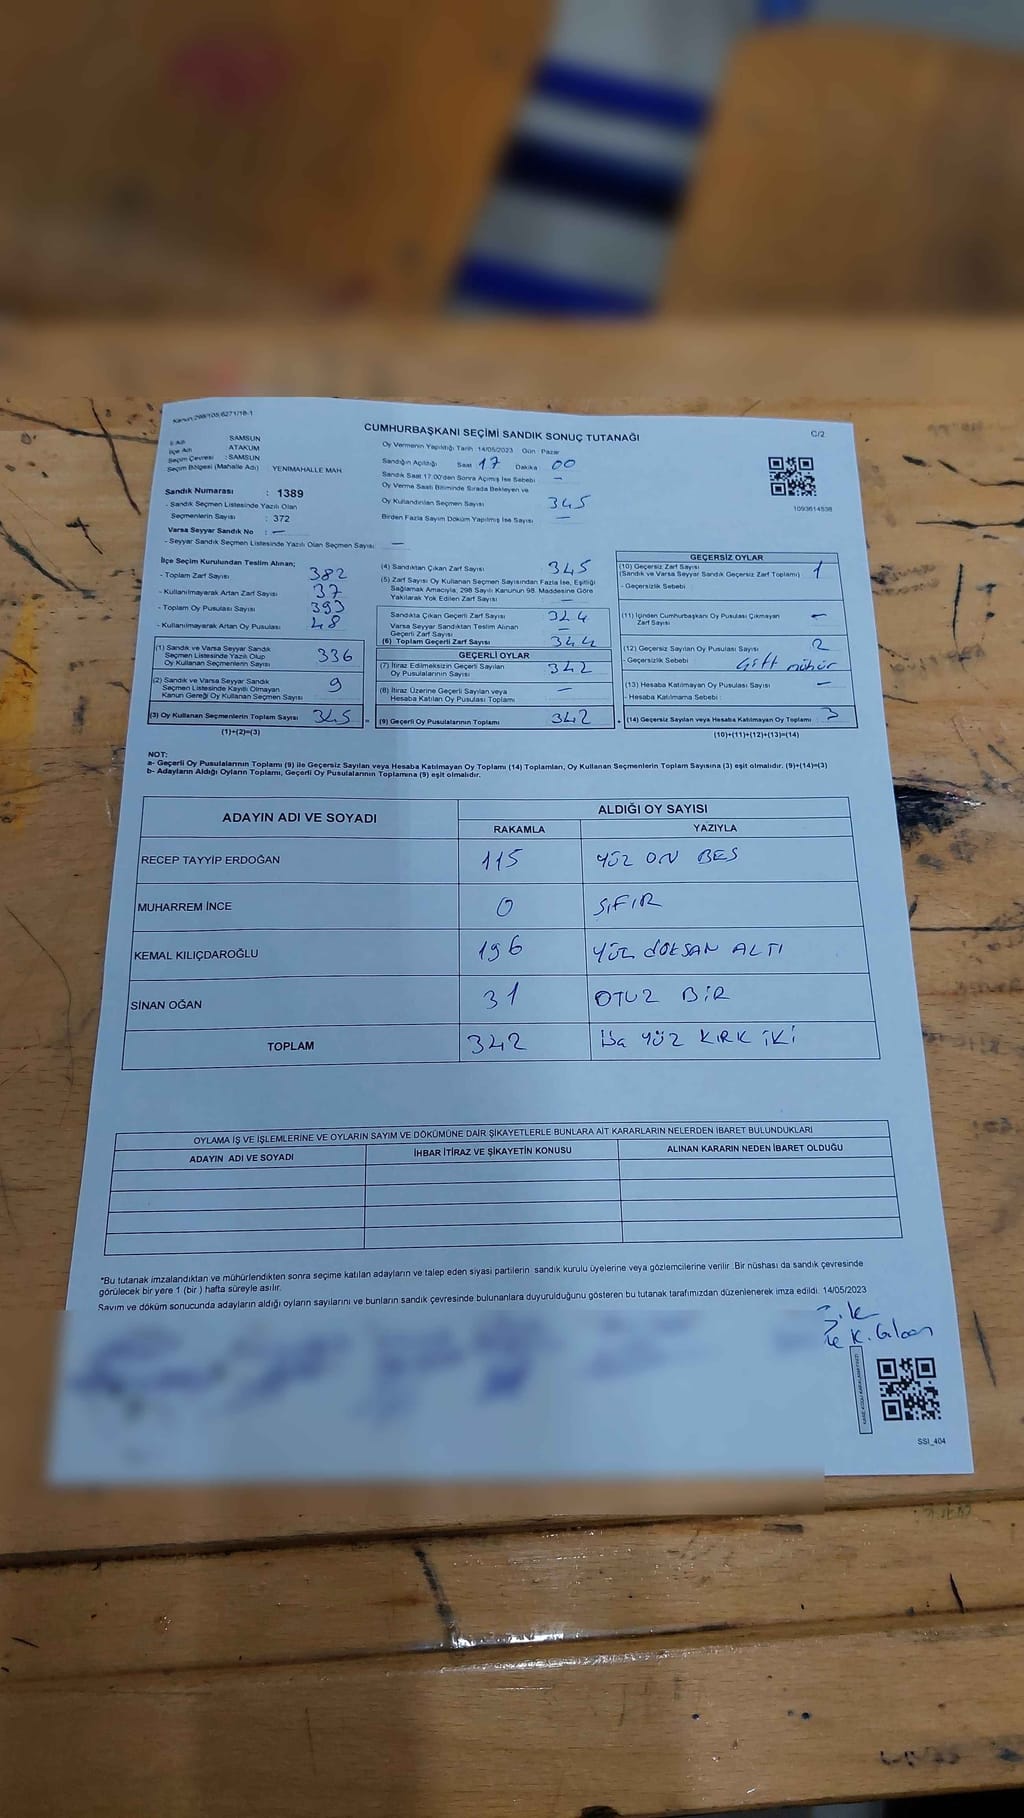 Kanun:298/105,6271/18-1
CUMHURBAŞKANI SEÇİMİ SANDIK SONUÇ TUTANAĞI
C/2
İl Adı : SAMSUN
İlçe Adı : ATAKUM
Seçim Çevresi : SAMSUN
Seçim Bölgesi (Mahalle Adı) : YENİMAHALLE MAH.
Sandık Numarası : 1389
- Sandık Seçmen Listesinde Yazılı Olan
Seçmenlerin Sayısı : 372
Varsa Seyyar Sandık No : —
- Seyyar Sandık Seçmen Listesinde Yazılı Olan Seçmen Sayısı: —
Oy Vermenin Yapıldığı Tarih :14/05/2023 Gün : Pazar
Sandığın Açıldığı Saat 17 Dakika 00
Sandık Saat 17:00'den Sonra Açımış İse Sebebi —
Oy Verme Saati Bitiminde Sırada Bekleyen ve
Oy Kullandırılan Seçmen Sayısı 345
Birden Fazla Sayım Döküm Yapılmış İse Sayısı —
1093614538
İlçe Seçim Kurulundan Teslim Alınan;
- Toplam Zarf Sayısı 382
- Kullanılmayarak Artan Zarf Sayısı 37
- Toplam Oy Pusulası Sayısı 393
- Kullanılmayarak Artan Oy Pusulası 48
(1) Sandık ve Varsa Seyyar Sandık
Seçmen Listesinde Yazılı Olup
Oy Kullanan Seçmenlerin Sayısı 336
(2) Sandık ve Varsa Seyyar Sandık
Seçmen Listesinde Kayıtlı Olmayan
Kanun Gereği Oy Kullanan Seçmen Sayısı 9
(3) Oy Kullanan Seçmenlerin Toplam Sayısı 345 =
(1)+(2)=(3)
(4) Sandıktan Çıkan Zarf Sayısı 345
(5) Zarf Sayısı Oy Kullanan Seçmen Sayısından Fazla İse, Eşitliği
Sağlamak Amacıyla; 298 Sayılı Kanunun 98. Maddesine Göre
Yakılarak Yok Edilen Zarf Sayısı —
Sandıkta Çıkan Geçerli Zarf Sayısı 344
Varsa Seyyar Sandıktan Teslim Alınan
Geçerli Zarf Sayısı —
(6) Toplam Geçerli Zarf Sayısı 344
GEÇERLİ OYLAR
(7) İtiraz Edilmeksizin Geçerli Sayılan
Oy Pusulalarının Sayısı 342
(8) İtiraz Üzerine Geçerli Sayılan veya
Hesaba Katılan Oy Pusulası Toplamı —
(9) Geçerli Oy Pusulalarının Toplamı 342 +
GEÇERSİZ OYLAR
(10) Geçersiz Zarf Sayısı
(Sandık ve Varsa Seyyar Sandık Geçersiz Zarf Toplamı) 1
- Geçersizlik Sebebi :
(11) İçinden Cumhurbaşkanı Oy Pusulası Çıkmayan
Zarf Sayısı —
(12) Geçersiz Sayılan Oy Pusulası Sayısı 2
- Geçersizlik Sebebi Çift mühür
(13) Hesaba Katılmayan Oy Pusulası Sayısı —
- Hesaba Katılmama Sebebi :
(14) Geçersiz Sayılan veya Hesaba Katılmayan Oy Toplamı 3
(10)+(11)+(12)+(13)=(14)
NOT:
a- Geçerli Oy Pusulalarının Toplamı (9) ile Geçersiz Sayılan veya Hesaba Katılmayan Oy Toplamı (14) Toplamları, Oy Kullanan Seçmenlerin Toplam Sayısına (3) eşit olmalıdır. (9)+(14)=(3)
b- Adayların Aldığı Oyların Toplamı, Geçerli Oy Pusulalarının Toplamına (9) eşit olmalıdır.
ADAYIN ADI VE SOYADI
ALDIĞI OY SAYISI
RAKAMLA YAZIYLA
RECEP TAYYİP ERDOĞAN 115 YÜZ ON BEŞ
MUHARREM İNCE 0 SIFIR
KEMAL KILIÇDAROĞLU 196 YÜZ DOKSAN ALTI
SİNAN OĞAN 31 OTUZ BİR
TOPLAM 342 YÜZ KIRK İKİ
OYLAMA İŞ VE İŞLEMLERİNE VE OYLARIN SAYIM VE DÖKÜMÜNE DAİR ŞİKAYETLERLE BUNLARA AİT KARARLARIN NELERDEN İBARET BULUNDUKLARI
ADAYIN ADI VE SOYADI İHBAR İTİRAZ VE ŞİKAYETİN KONUSU ALINAN KARARIN NEDEN İBARET OLDUĞU
*Bu tutanak imzalandıktan ve mühürlendikten sonra seçime katılan adayların ve talep eden siyasi partilerin sandık kurulu üyelerine veya gözlemcilerine verilir .Bir nüshası da sandık çevresinde
görülecek bir yere 1 (bir ) hafta süreyle asılır.
Sayım ve döküm sonucunda adayların aldığı oyların sayılarını ve bunların sandık çevresinde bulunanlara duyurulduğunu gösteren bu tutanak tarafımızdan düzenlenerek imza edildi. 14/05/2023
SSI_404